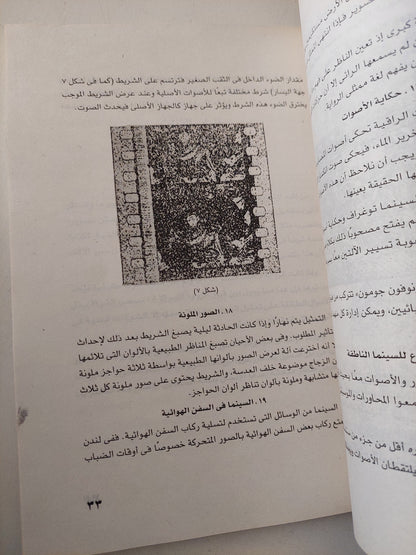 مقدار الضوء الداخل فى الثقب الصغير فترتسم على الشريط (كما فى شكل ٧
جهة اليسار) شرط مختلفة تبعًا للأصوات الأصلية وعند عرض الشريط الموجب
يخترق الضوء هذه الشرط ويؤثر على جهاز كالجهاز الأصلى فيحدث الصوت.
(شكل ٧)
١٨. الصور الملونة
التمثيل يتم نهارًا وإذا كانت الحادثة ليلية يصبغ الشريط بعد ذلك لإحداث
تأثير المطلوب. وفى بعض الأحيان تصبغ المناظر الطبيعية بالألوان التى تلائمها
أنه اخترعت آلة لعرض الصور بألوانها الطبيعية بواسطة ثلاثة حواجز ملونة
من الزجاج موضوعة خلف العدسة. والشريط يحتوى على صور ملونة كل ثلاث
منها متشابهة وملونة بألوان تناظر ألوان الحواجز.
١٩. السينما فى السفن الهوائية
السينما من الوسائل التى تستخدم لتسلية ركاب السفن الهوائية. ففى لندن
متع ركاب بعض السفن الهوائية بالصور المتحركة خصوصًا فى أوقات الضباب
٣٣
الأرض
تصوير فإذا انتهى
كبرى إذ تعين الناظر على
لم يسمعها الرائى إلا أن
أن يفهم لغة ممثلى الرواية
. حكاية الأصوات
الراقية تحكى أصوات
خرير الماء. فيحكى صوت
يجب أن نلاحظ أن هذه
الحقيقة بعينها.
لسينما توغراف وحكاية
لم يفتح مصحوبًا ذلك بكلام
صوبة تسيير الآلتين معًا
نوفون جومون، تتركب من
بائيين. ويمكن إدارة كل منهما
ع للسينما الناطقة
ر والأصوات معًا
سمعوا المحاورات
ره أقل من جزء من
يلتقطان الأصوات